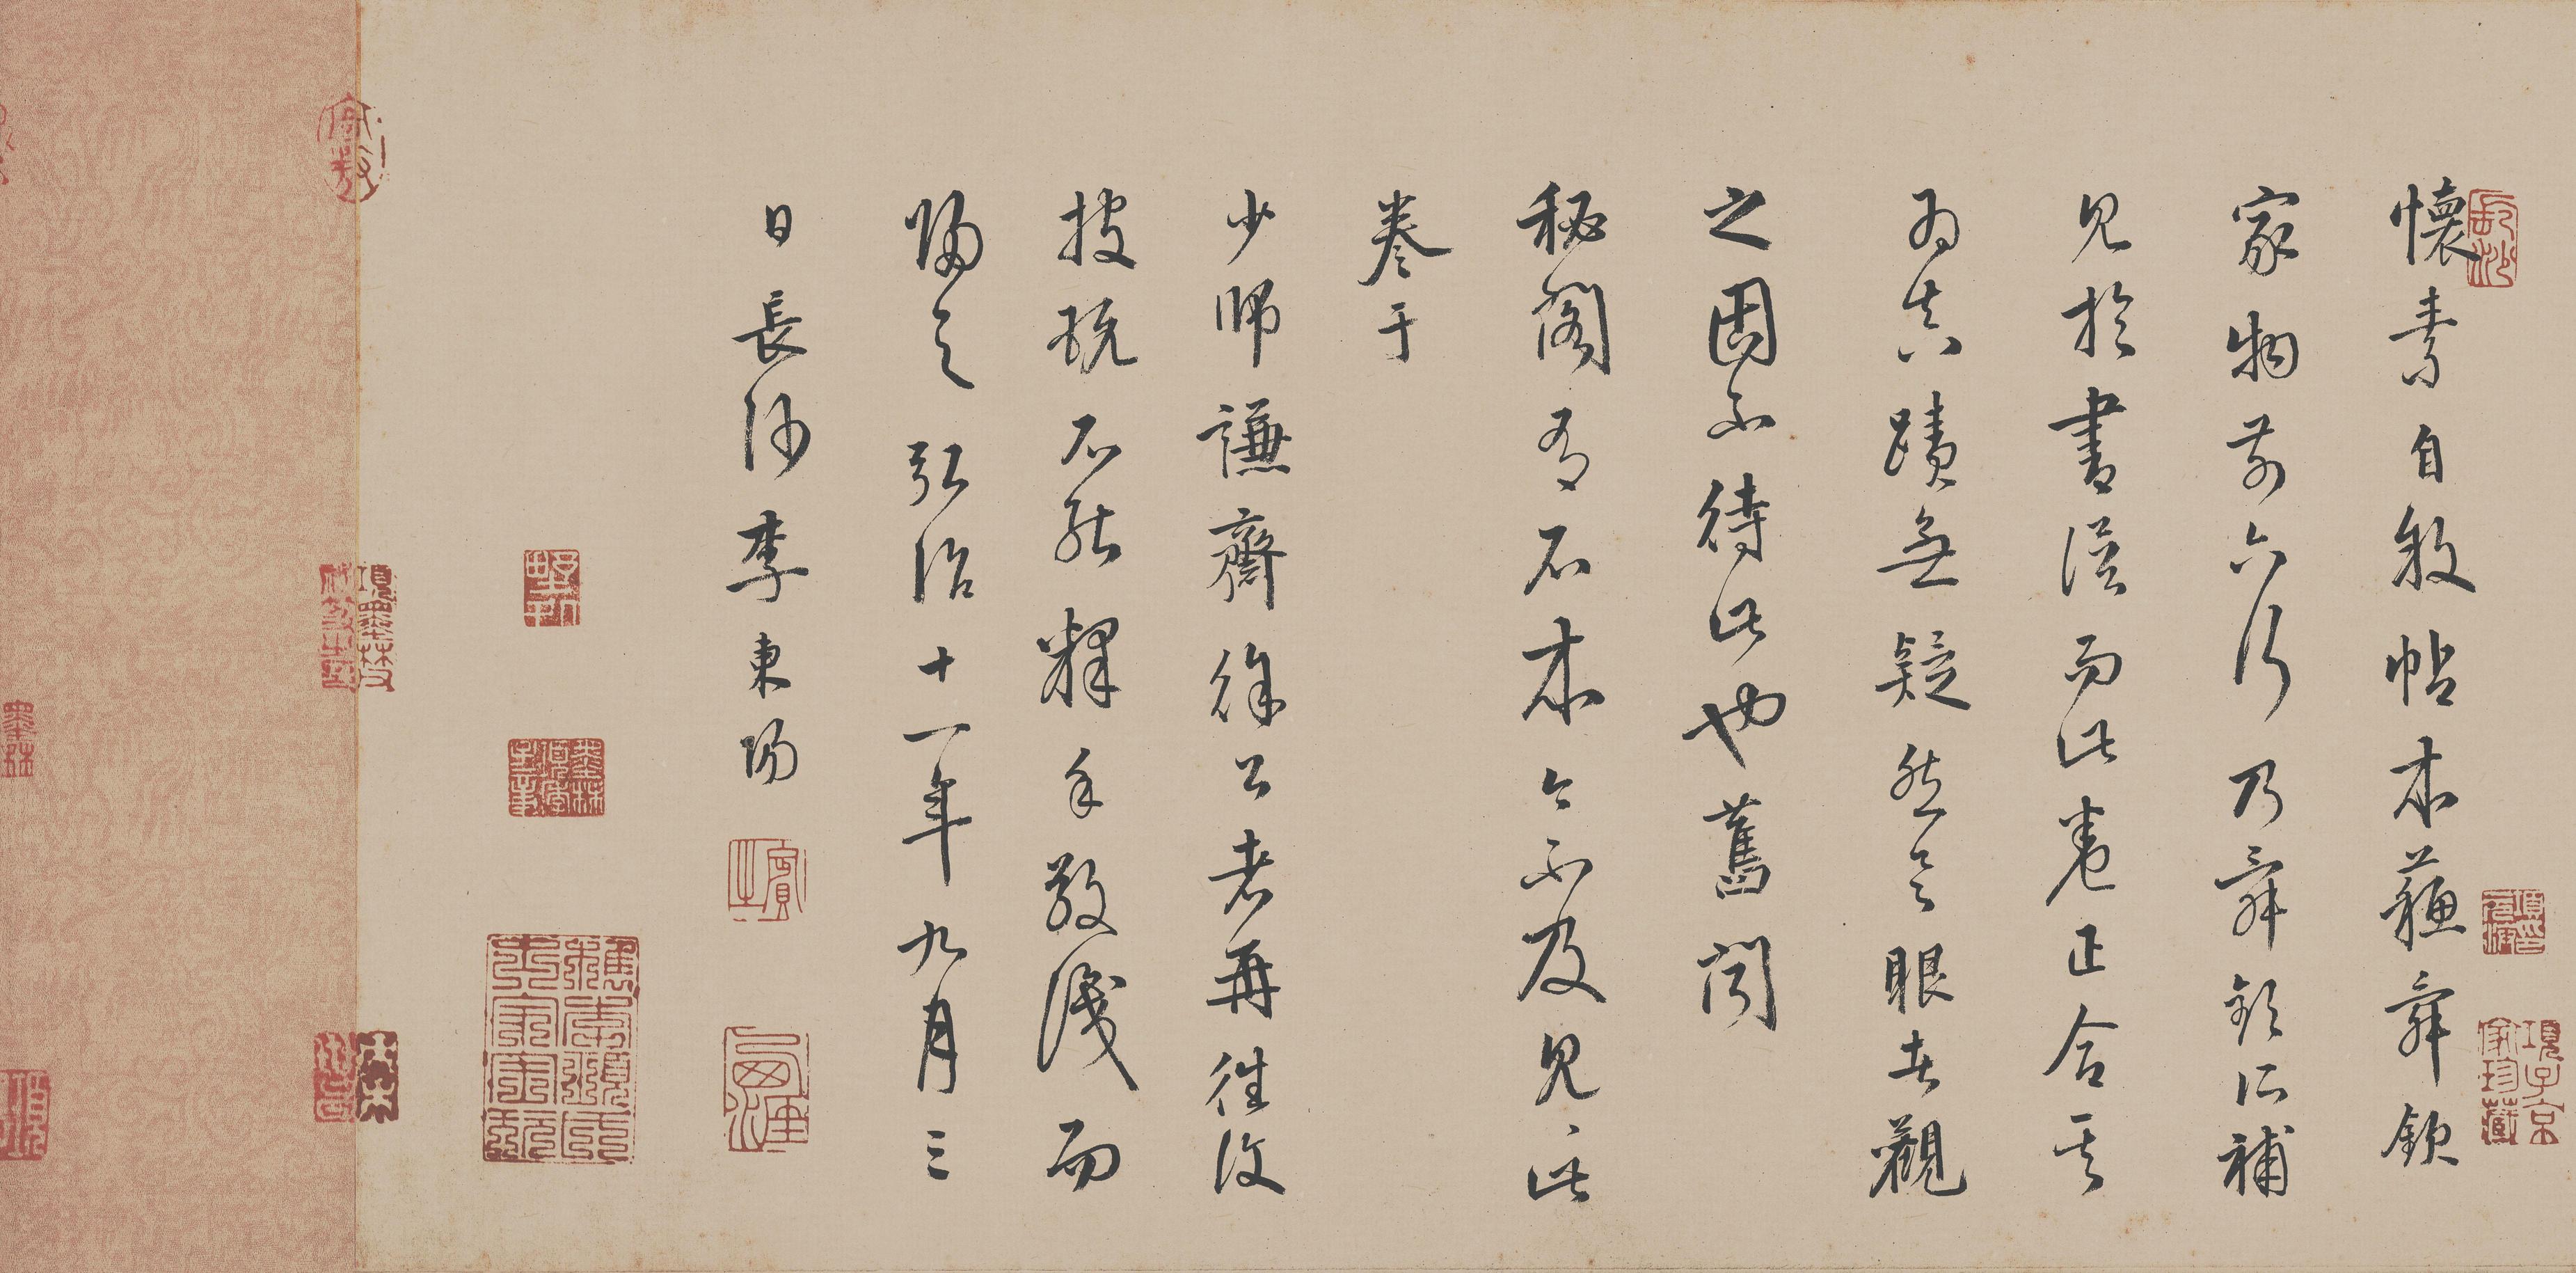 懷素自敘帖本蘇舜欽
家物前六行乃舜欽所補
見於書譜而此卷正合其
為真蹟無疑然具眼者觀
之固不待此也舊聞
秘閣有石本今不及見此
卷于
少師謙齋徐公老再往復
披玩不能釋手敬識而
歸之弘治十一年九月三
日長沙李東陽
賓之
項子京
家珍藏